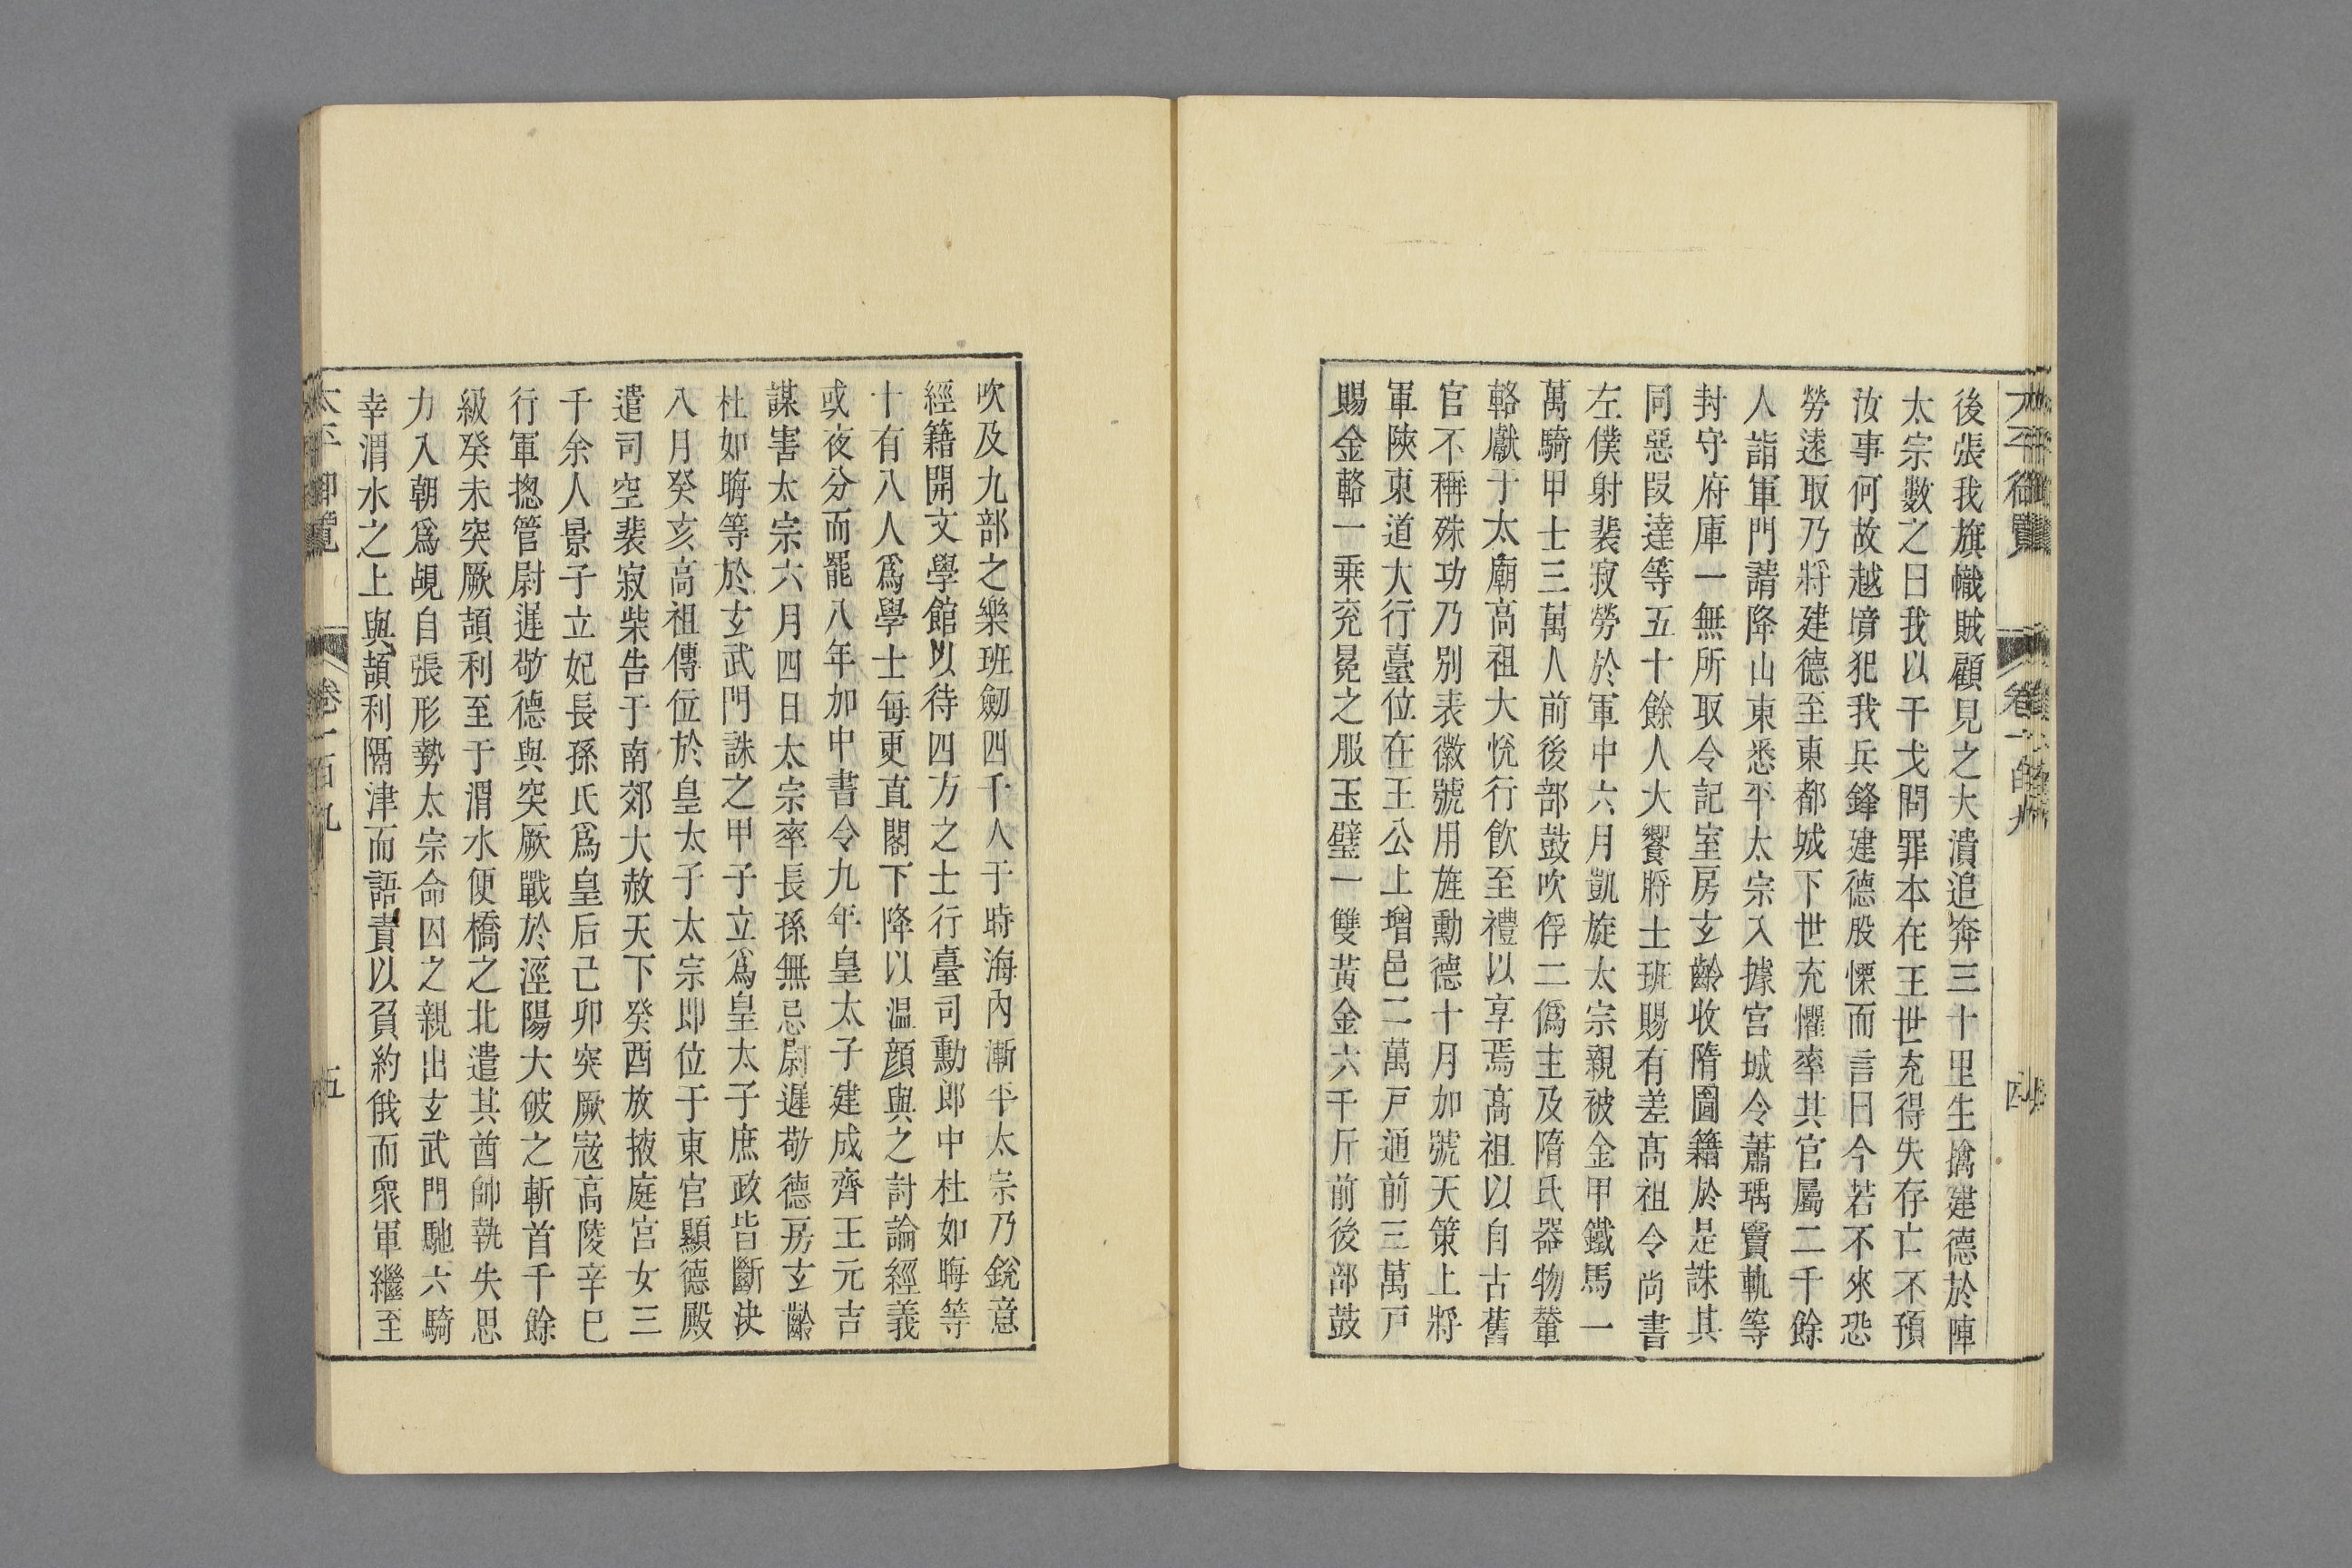 後張我旗幟賊顧見之大潰追奔三十里生擒建德於陣
太宗數之曰我以干戈問罪本在王世充得失存亡不預
汝事何故越境犯我兵鋒建德股慄而言曰今若不來恐
勞逺取乃將建德至東都城下世充懼率其官屬二千餘
人詣軍門請降山東悉平太宗入據宮城令蕭瑀竇軌等
封守府庫一無所取令記室房玄齡收隋圖籍於是誅其
同惡叚達等五十餘人大饗將士班賜有差髙祖令尚書
左僕射裴寂勞於軍中六月凱旋太宗親被金甲鐵馬一
萬騎甲士三萬人前後部鼓吹俘二偽主及隋氏器物輦
輅獻于太廟高祖大恱行飲至禮以享焉髙祖以自古舊
官不稱殊功乃别表徽號用旌勳德十月加號天策上將
軍陜東道大行臺位在王公上增邑二萬戸通前三萬戸
賜金輅一乗兖冕之服玉璧一雙黃金六千斤前後部鼓
吹及九部之樂班劒四千人于時海內漸平太宗乃銳意
經籍開文學館以待四方之士行臺司勳郎中杜如晦等
十有八人爲學士每更直閣下降以温顔與之討論經義
或夜分而罷八年加中書令九年皇太子建成齊王元吉
謀害太宗六月四日太宗率長孫無忌尉遲敬德房玄齡
杜如晦等於玄武門誅之甲子立爲皇太子庶政皆斷決
八月癸亥高祖傳位於皇太子太宗即位于東宮顯德殿
遣司空裴寂柴告于南郊大赦天下癸酉放掖庭宮女三
千余人景子立妃長孫氏爲皇后己卯突厥寇高陵辛巳
行軍揔管尉遲敬德與突厥戰於涇陽大破之斬首千餘
級癸未突厥頡利至于渭水便橋之北遣其酋帥執失思
力入朝爲覘自張形勢太宗命囚之親出玄武門馳六騎
幸渭水之上與頡利隔津而語責以負約俄而眾軍繼至
太平御覽 卷一百九 五